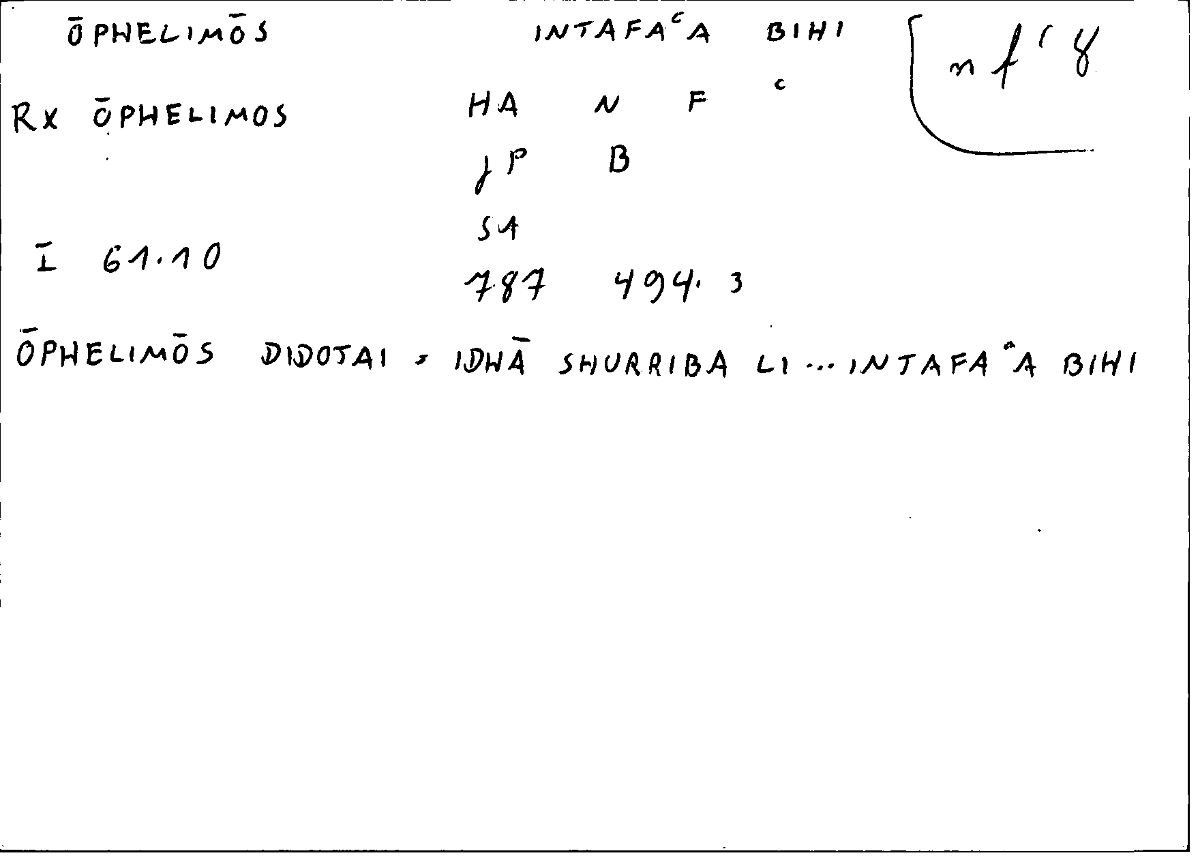 ŌPHELIMŌS INTAFAᶜA BIHI nfʿ8
RX ŌPHELIMOS HA N F ᶜ
JP B
SA
I 61.10
787 494.3
ŌPHELIMŌS DIDOTAI = IDHĀ SHURRIBA LI ... INTAFAᶜA BIHI